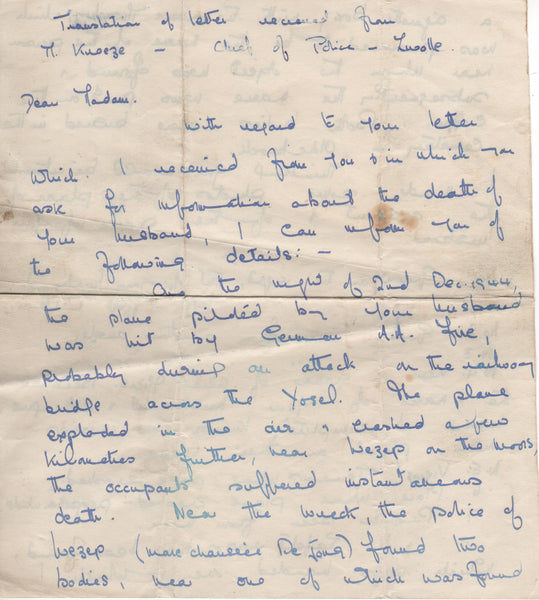 Translation of letter received from
M. Kroeze — Chief of Police — Zwolle.
Dear Madam.
With regard to your letter
which I received from you & in which you
ask for information about the death of
your husband, I can inform you of
the following details: -
One the night of 2nd Dec. 1944,
the plane piloted by your husband
was hit by German A.A. fire,
probably during an attack on the railway
bridge across the Yosel. The plane
exploded in the air & crashed a few
kilometres further, near Wezep on the moors,
the occupants suffered instantaneous
death. Near the wreck, the police of
Wezep (mare chaussée De Jong) found two
bodies, near one of which was found